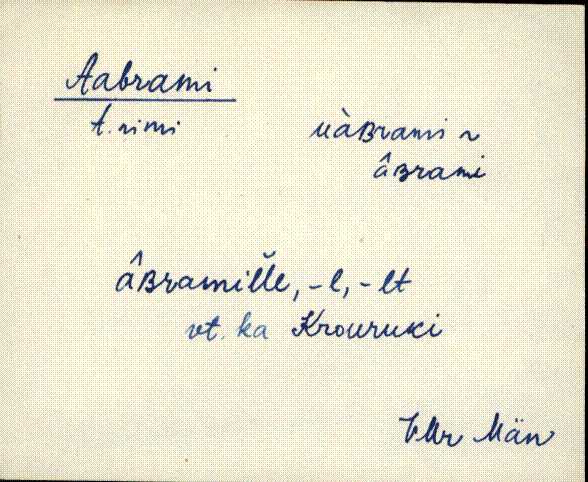 Aabrami
t. nimi
ùàʙrami ~
âʙrami
âʙramiľľe, -l, -lt
vt. ka Krouruki
VMr Män